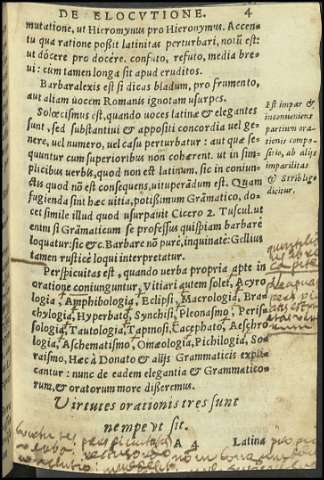 DE ELOCVTIONE. 4
mutatione, ut Hieromynus pro Hieronymus. Accen-
tu qua ratione poßit latinitas perturbari, notū est:
ut dócere pro docére. confuto, refuto, media bre-
ui: cum tamen longa sit apud eruditos.
Barbaralexis est si dicas bladum, pro frumento,
aut aliam uocem Romanis ignotam usurpes.
Solœcismus est, quando uoces latinæ & elegantes
sunt, sed substantiui & appositi concordia uel ge-
nere, uel numero, uel casu perturbatur: aut quæ se-
quuntur cum superioribus non cohærent. ut in sim-
plicibus uerbis, quod non est latinum. sic in coniun-
ctis quod nō est consequens, uituperādum est. Quam
fugienda sint hæc uitia, potißimum Grāmatico, do-
cet simile illud quod usurpauit Cicero 2. Tuscul. ut
enim si Grāmaticum se professus quispiam barbarè
loquatur: sic &c. Barbarè nō purè, inquinatè: Gellius
tamen rusticè loqui interpretatur.
Est impar &
inconueniens
partium ora-
tionis compo-
sitio, ab alijs
imparilitas
& Stribligo
dicitur.
Perspicuitas est, quando uerba propria aptè in
oratione coniunguntur, Vitiari autem solet, Acyro
logia, Amphibologia, Eclipsi, Macrologia, Bra-
chylogia, Hyperbato, Synchisi, Pleonasmo, Periss
sologia, Tautologia, Tapinosi, Cacephato, Aeschro
logia, Aschematismo, Omœologia, Pœcilogia, So-
raismo, Hæc à Donato & alijs Grammaticis expli-
cantur: nunc de eadem elegantia & Grammatico-
rum, & oratorum more disseremus.
Virtutes orationis tres sunt
nempe ut sit.
A 4 Latina